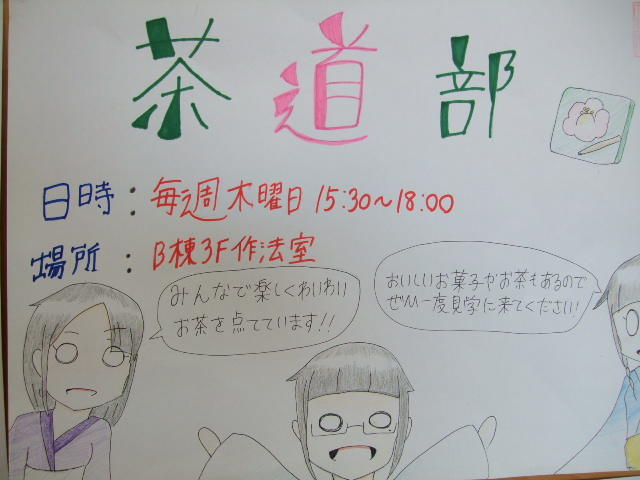 茶道部
日時：毎週木曜日 15:30～18:00
場所：B棟3F作法室
みんなで楽しくわいわい
お茶を点てています!!
おいしいお菓子やお茶もあるので
ぜひ一度見学に来てください!